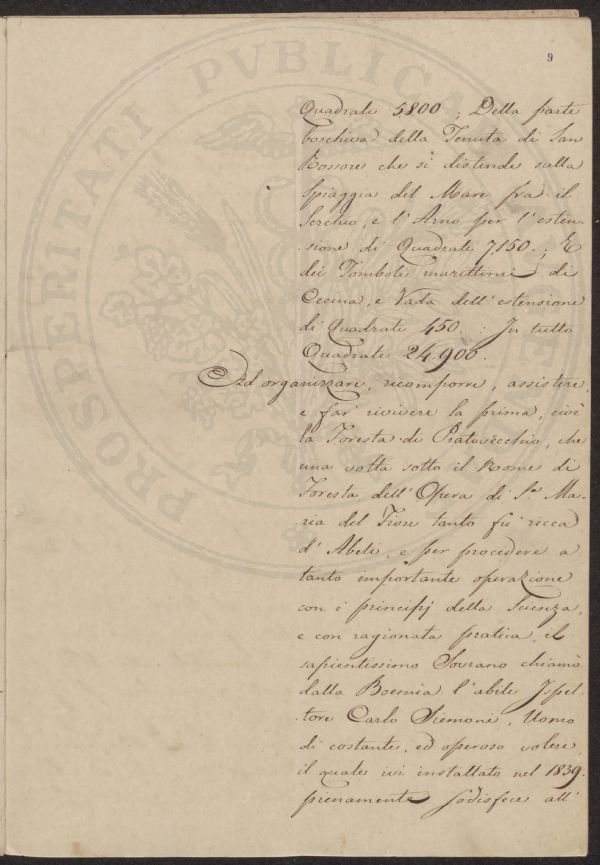 9
Quadrati 5800.; Della parte
boschiva della Tenuta di San
Rossore che si distende sulla
Spiaggia del Mare fra il
Serchio, e l'Arno per l'esten-
sione di Quadrati 7150.; E
dei Tomboli marittimi di
Cecina, e Vada dell'estensione
di Quadrati 450.: In tutto
Quadrati 24,900.
Ad organizzare, ricomporre, assistire,
e far rivivere la prima, cioè
la Foresta di Pratovecchio, che
una volta sotto il Nome di
Foresta dell'Opera di S.a Ma-
ria del Fiore tanto fù ricca
d'Abeti, e per procedere a
tanto importante operazione
con i principj della Scienza,
e con ragionata pratica, il
sapientissimo Sovrano chiamò
dalla Boemia l'abile Ispet-
tore Carlo Siemoni, Uomo
di costante, ed operoso volere,
il quale ivi installato nel 1839.
pienamente sodisfece all'
PROSPERITATI PVBLICAE